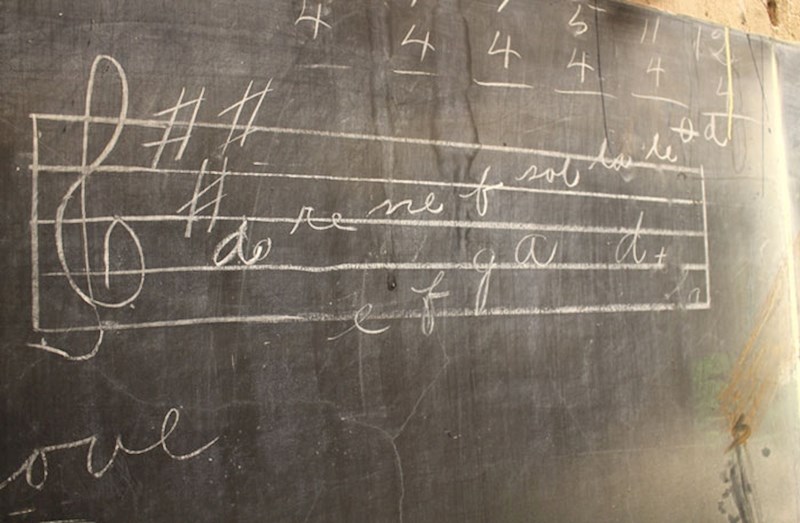 4 4 4 5 11 12
4 4 4
# #
#
do re me f sol la le d
e f g a d
ove